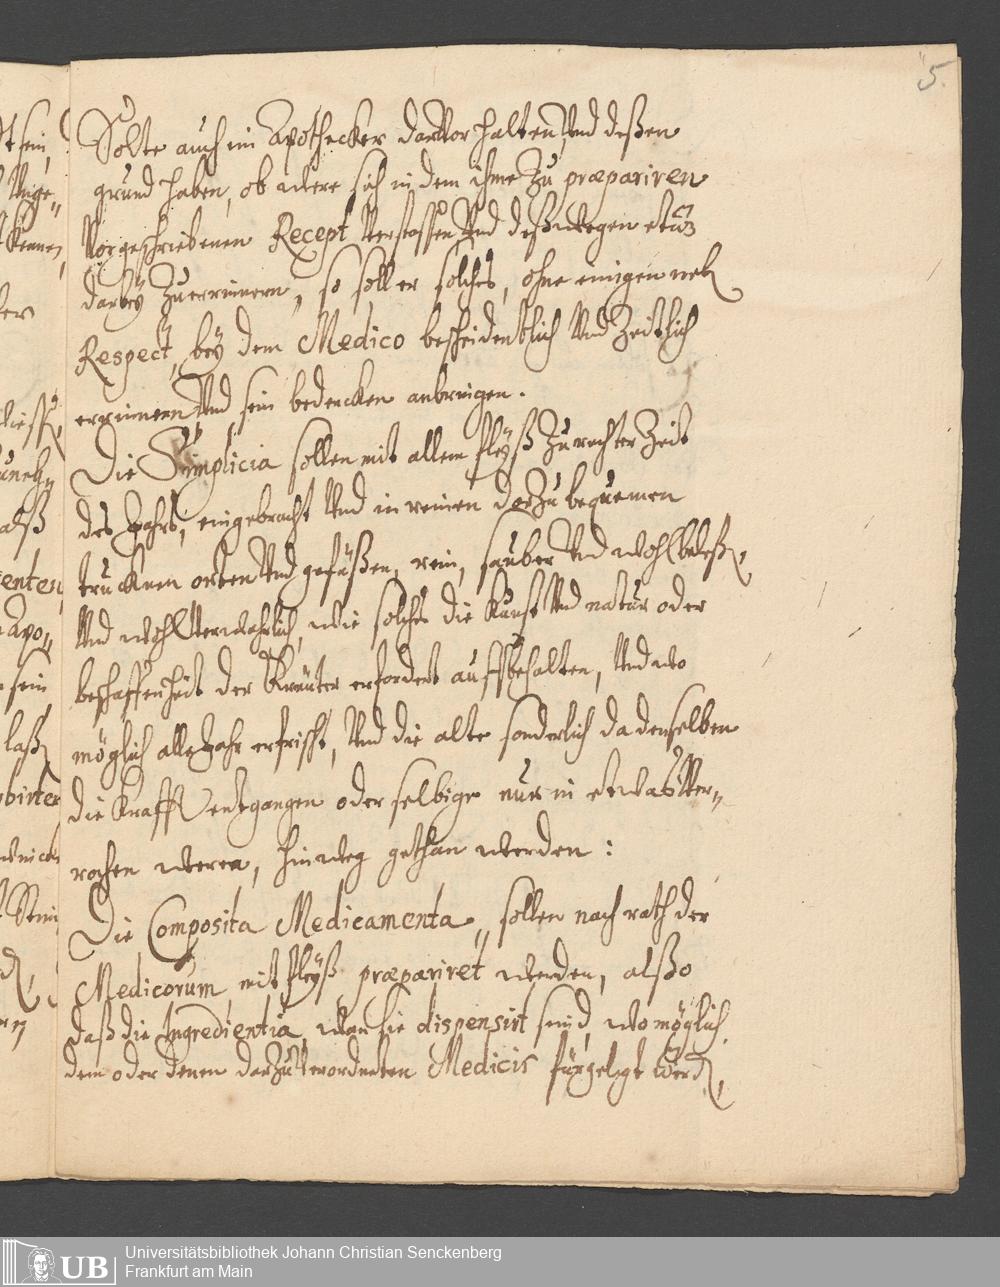 5.
Solte auch ein Apothecker darvor halten, Und deßen
grund haben, ob were sich in dem ihme Zu præpariren
Vorgeschriebenen Recept Verstossen, Und deßwegen etwz
darbeÿ Zuerinnern, so soll er solches, ohne einigen
Respect, beÿ dem Medico bescheidentlich Und Zeitlich
erinnern, Und sein bedencken anbringen.
Die Simplicia sollen mit allem fleÿß Zu rechter Zeit
des Jahrs, eingebracht Und in reinen darzu bequemen
trucknen orten Und gefäßen, rein, sauber Und wohl
Und wohl Verwahrlich, wie solches die Kunst Und natur oder
beschaffenheit der Kräuter erfordert auffbehalten, Und wo
möglich alle Jahr erfrischt, Und die alte sonderlich da denselben
die Krafft entgangen oder selbige nur in etwas Ver„
rochen weren, hinweg gethan werden:
Die Composita Medicamenta, sollen nach rath der
Medicorum mit fleÿß præpariret werden, alßo
daß die Ingredientia, wan sie dispensirt seind, wo möglich
dem oder denen darzu Verordneten Medicis fürgelegt werd,
UB
Universitätsbibliothek Johann Christian Senckenberg
Frankfurt am Main